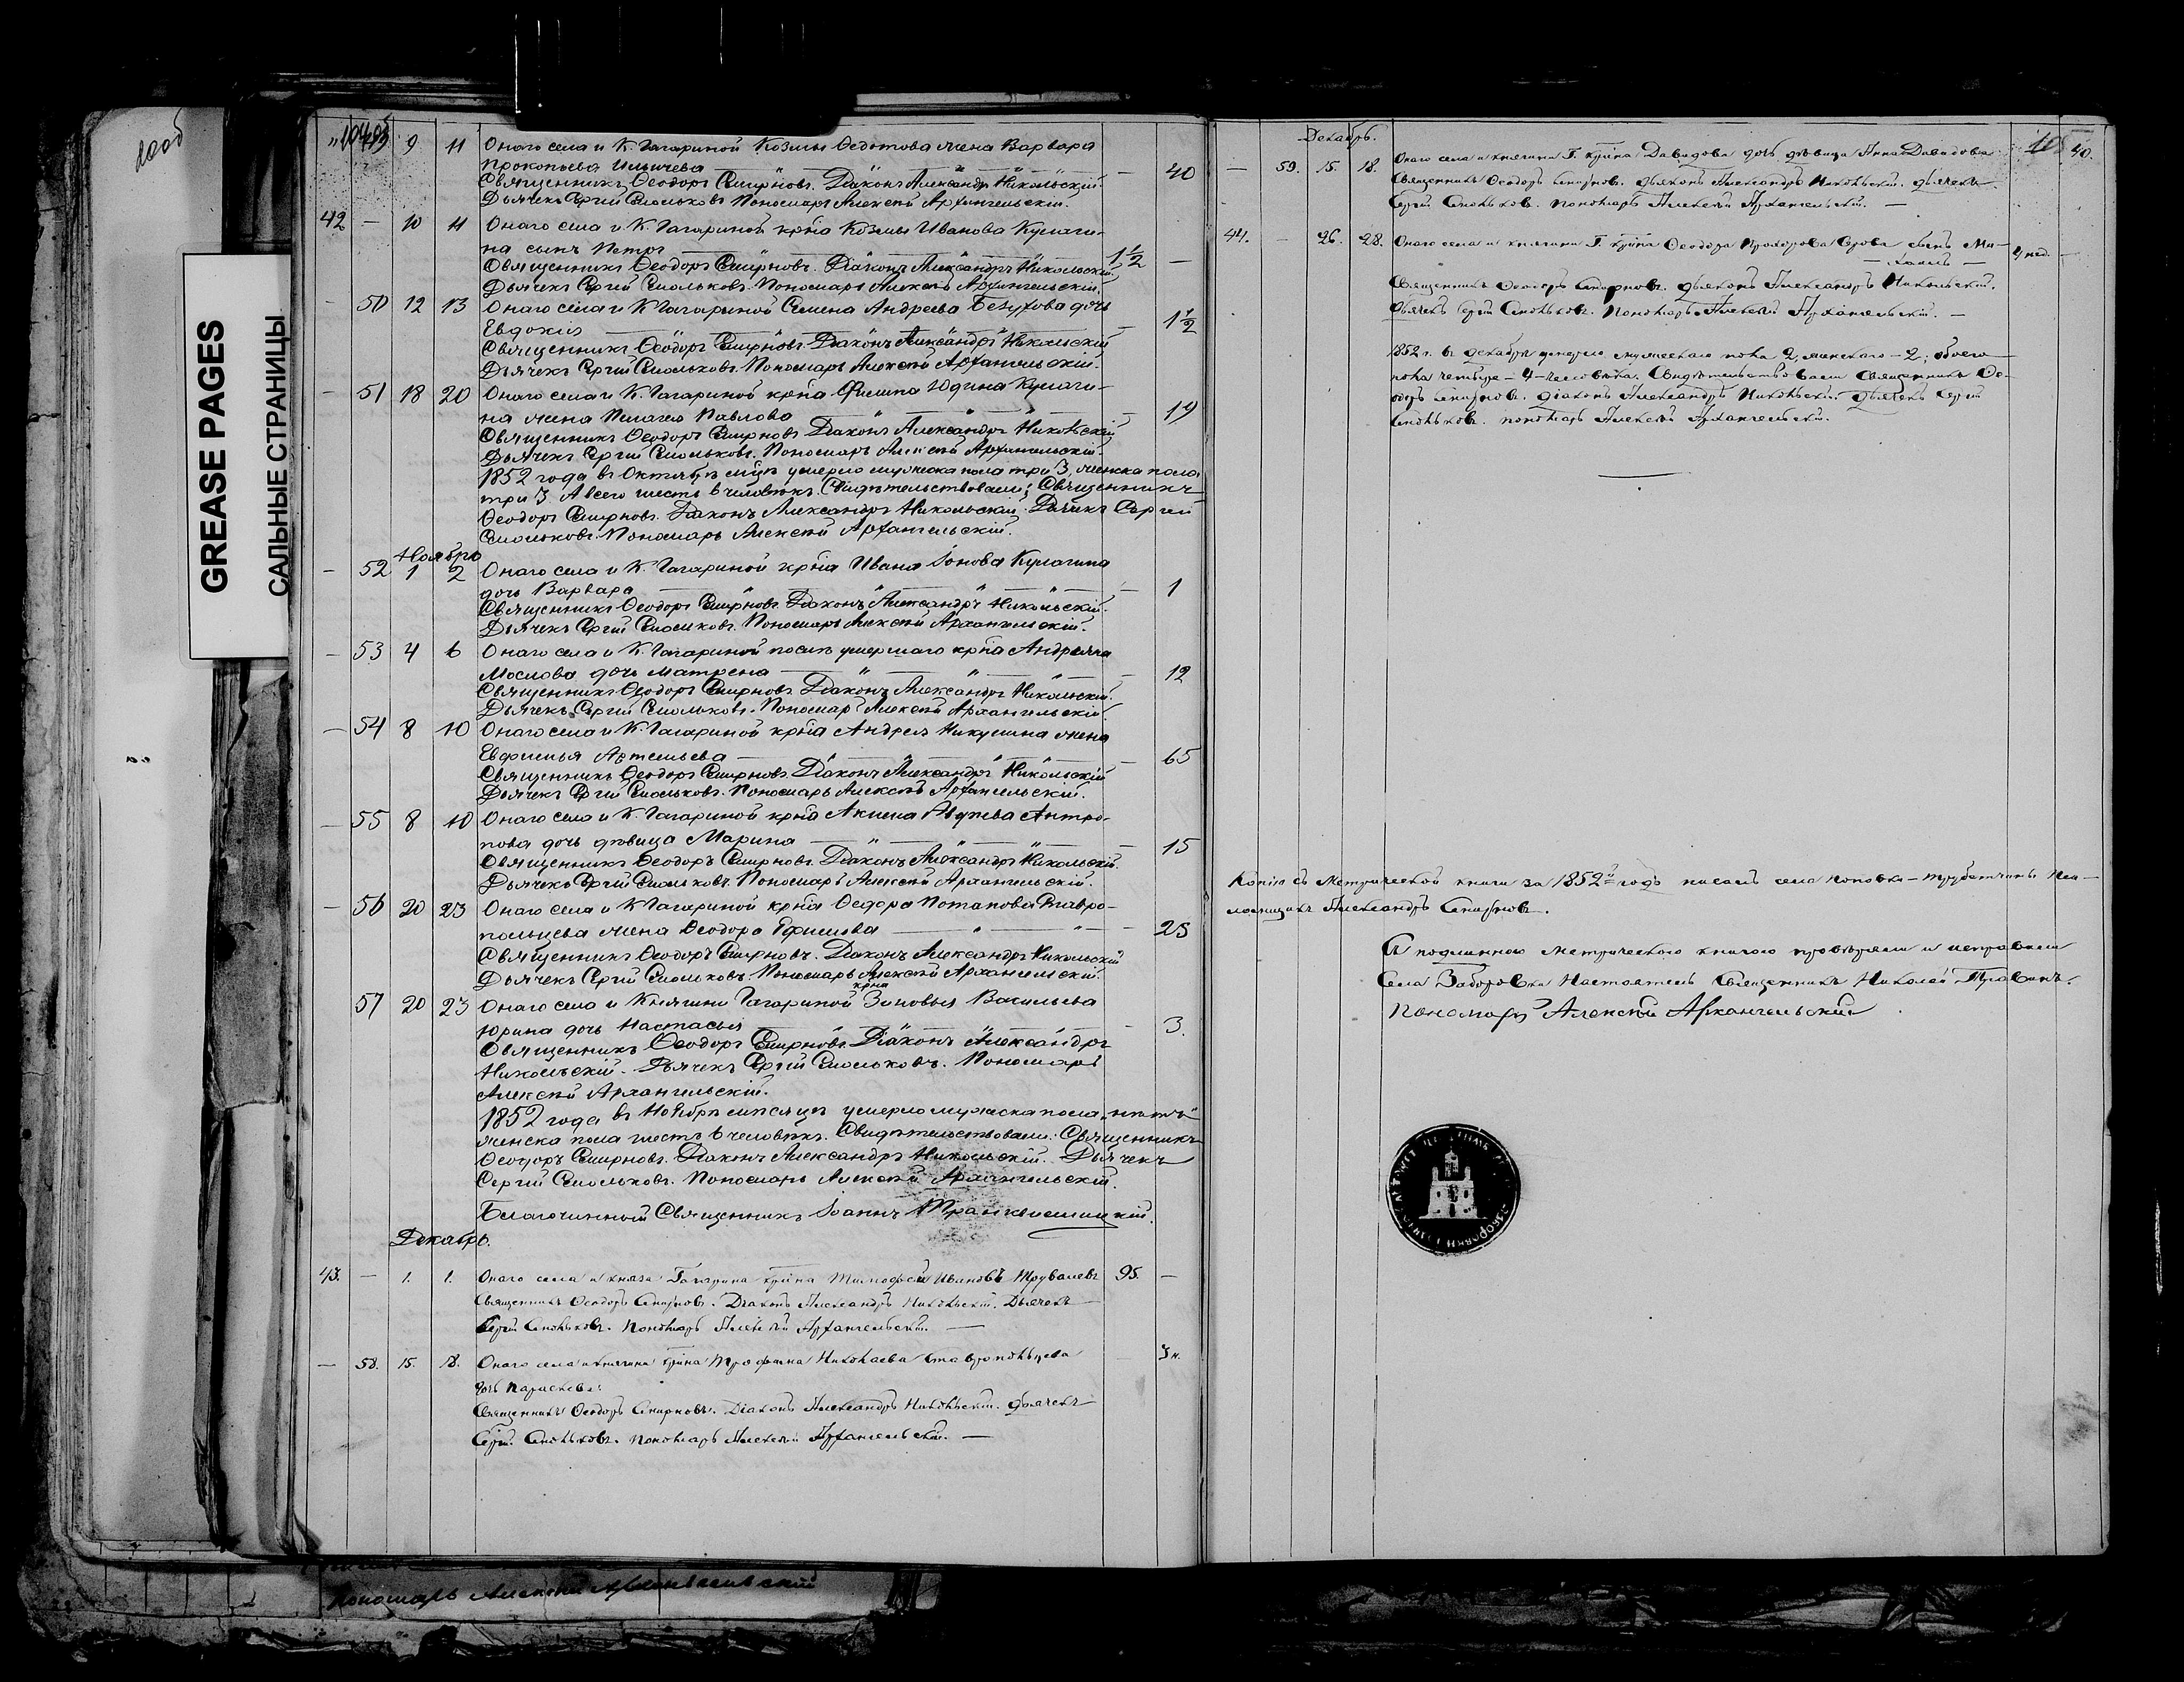 GREASE PAGES
САЛЬНЫЕ СТРАНИЦЫ
9 11 Онаго села и К. Гагариной Козмы Ѳедотова жена Варвара
Прокопьева — 40
Священникъ Ѳеодоръ Смирновъ. Діаконъ Александръ Никольскій.
Дьячекъ Сергій Смольковъ. Пономарь Алексѣй Архангельскій.
42 — 10 11 Онаго села и К. Гагариной крн͠а Козмы Иванова Кулаги-
на сынъ Петръ 1½ —
Священникъ Ѳеодоръ Смирновъ. Діаконъ Александръ Никольскій
Дьячекъ Сергій Смольковъ. Пономарь Алексѣй Архангельскій.
— 50 12 13 Онаго села и К. Гагариной Семена Андреева дочь
Евдокія — 1½
Священникъ Ѳеодоръ Смирновъ. Діаконъ Александръ Никольскій
Дьячекъ Сергій Смольковъ. Пономарь Алексѣй Архангельскій.
— 51 18 20 Онаго села и К. Гагариной крн͠а Филипа Юдина Кулаги-
на жена Пелагея Павлова — 19
Священникъ Ѳеодоръ Смирновъ Діаконъ Александръ Никольскій
Дьячекъ Сергій Смольковъ. Пономарь Алексѣй Архангельскій.
1852 года въ Октябрѣ м͠цѣ умерло мужска пола три 3, женска пола
три 3. А всего шесть 6 человѣкъ. Свидѣтельствовали: Священникъ
Ѳеодоръ Смирновъ. Діаконъ Александръ Никольскій. Дьячекъ Сергій
Смольковъ. Пономарь Алексѣй Архангельскій.
Ноябрь
— 52 1 2 Онаго села и К. Гагариной крн͠а Ивана Іонова Кулагина
дочь Варвара — 1
Священникъ Ѳеодоръ Смирновъ. Діаконъ Александръ Никольскій.
Дьячекъ Сергій Смольковъ. Пономарь Алексѣй Архангельскій.
— 53 4 6 Онаго села и К. Гагариной послѣ умершаго крн͠а Андреяна
Маслова дочь Матрена — 12
Священникъ Ѳеодоръ Смирновъ Діаконъ Александръ Никольскій.
Дьячекъ Сергій Смольковъ. Пономарь Алексѣй Архангельскій.
— 54 8 10 Онаго села и К. Гагариной крн͠а Андрея Никулина жена
Евфимья Артемьева — 65
Священникъ Ѳеодоръ Смирновъ. Діаконъ Александръ Никольскій
Дьячекъ Сергій Смольковъ. Пономарь Алексѣй Архангельскій.
— 55 8 10 Онаго села и К. Гагариной крн͠а Акима Антро-
пова дочь дѣвица Марина — 15
Священникъ Ѳеодоръ Смирновъ. Діаконъ Александръ Никольскій.
Дьячекъ Сергій Смольковъ. Пономарь Алексѣй Архангельскій.
— 56 20 23 Онаго села и К. Гагариной крн͠а Ѳедора Потапова Ставро-
польцева жена Ѳеодора Ефимова — 25
Священникъ Ѳеодоръ Смирновъ. Діаконъ Александръ Никольскій
Дьячекъ Сергій Смольковъ. Пономарь Алексѣй Архангельскій.
крна
57 20 23 Онаго села и Княгини Гагариной Зиновья Васильева
Юрина дочь Настасья — 3.
Священникъ Ѳеодоръ Смирновъ. Діаконъ Александръ
Никольскій. Дьячекъ Сергій Смольковъ. Пономарь
Алексѣй Архангельскій.
1852 года въ Ноябрѣ мѣсяцѣ умерло мужска пола „нѣтъ“
женска пола шесть 6 человѣкъ. Свидѣтельствовали: Священникъ
Ѳеодоръ Смирновъ. Діаконъ Александръ Никольскій. Дьячекъ
Сергій Смольковъ. Пономарь Алексѣй Архангельскій.
Благочинный Священникъ Іоаннъ
Декабрь.
43. — 1. 1. Онаго села и князя Гагарина крн͠а Тимофей Ивановъ 95. —
Священникъ Ѳеодоръ Смирновъ. Діаконъ Александръ Никольскій. Дьячекъ
Сергій Смольковъ. Пономарь Алексѣй Архангельскій. —
— 58. 15. 18. Онаго села и княгини крн͠на Трофима Николаева Ставропольцева 3 н.
дочь Параскева.
Священникъ Ѳеодоръ Смирновъ. Діаконъ Александръ Никольскій. Дьячекъ
Сергій Смольковъ. Пономарь Алексѣй Архангельскій. —
Декабрь.
— 59. 15. 18. Онаго села и княгини Г. крн͠на Давидова дочь дѣвица Анна Давидова 40.
Священникъ Ѳеодоръ Смирновъ. Дьяконъ Александръ Никольскій. Дьячекъ
Сергій Смольковъ. Пономарь Алексѣй Архангельскій. —
44. — 26. 28. Онаго села и княгини Г. крн͠на Ѳеодора Прохорова сынъ Ми- —
— хаилъ —
Священникъ Ѳеодоръ Смирновъ. Дьяконъ Александръ Никольскій.
Дьячекъ Сергій Смольковъ. Пономарь Алексѣй Архангельскій. —
1852 г. въ декабрѣ умерло мужескаго пола 2, женскаго – 2; обоего
пола четыре – 4 – человѣка. Свидѣтельствовали Священникъ Ѳе-
одоръ Смирновъ. Діаконъ Александръ Никольскій. Дьячекъ Сергій
Смольковъ. Пономарь Алексѣй Архангельскій.
Копію съ Метрической книги за 1852й годъ писалъ села Поповки Пса-
ломщикъ Александръ Смирновъ.
Съ подлинною метрическою книгою провѣряли и исправили
Села Заборовки Настоятель Священникъ Николай
Пономарь Алексѣй Архангельскій
Пономарь Алексѣй Архангельскій